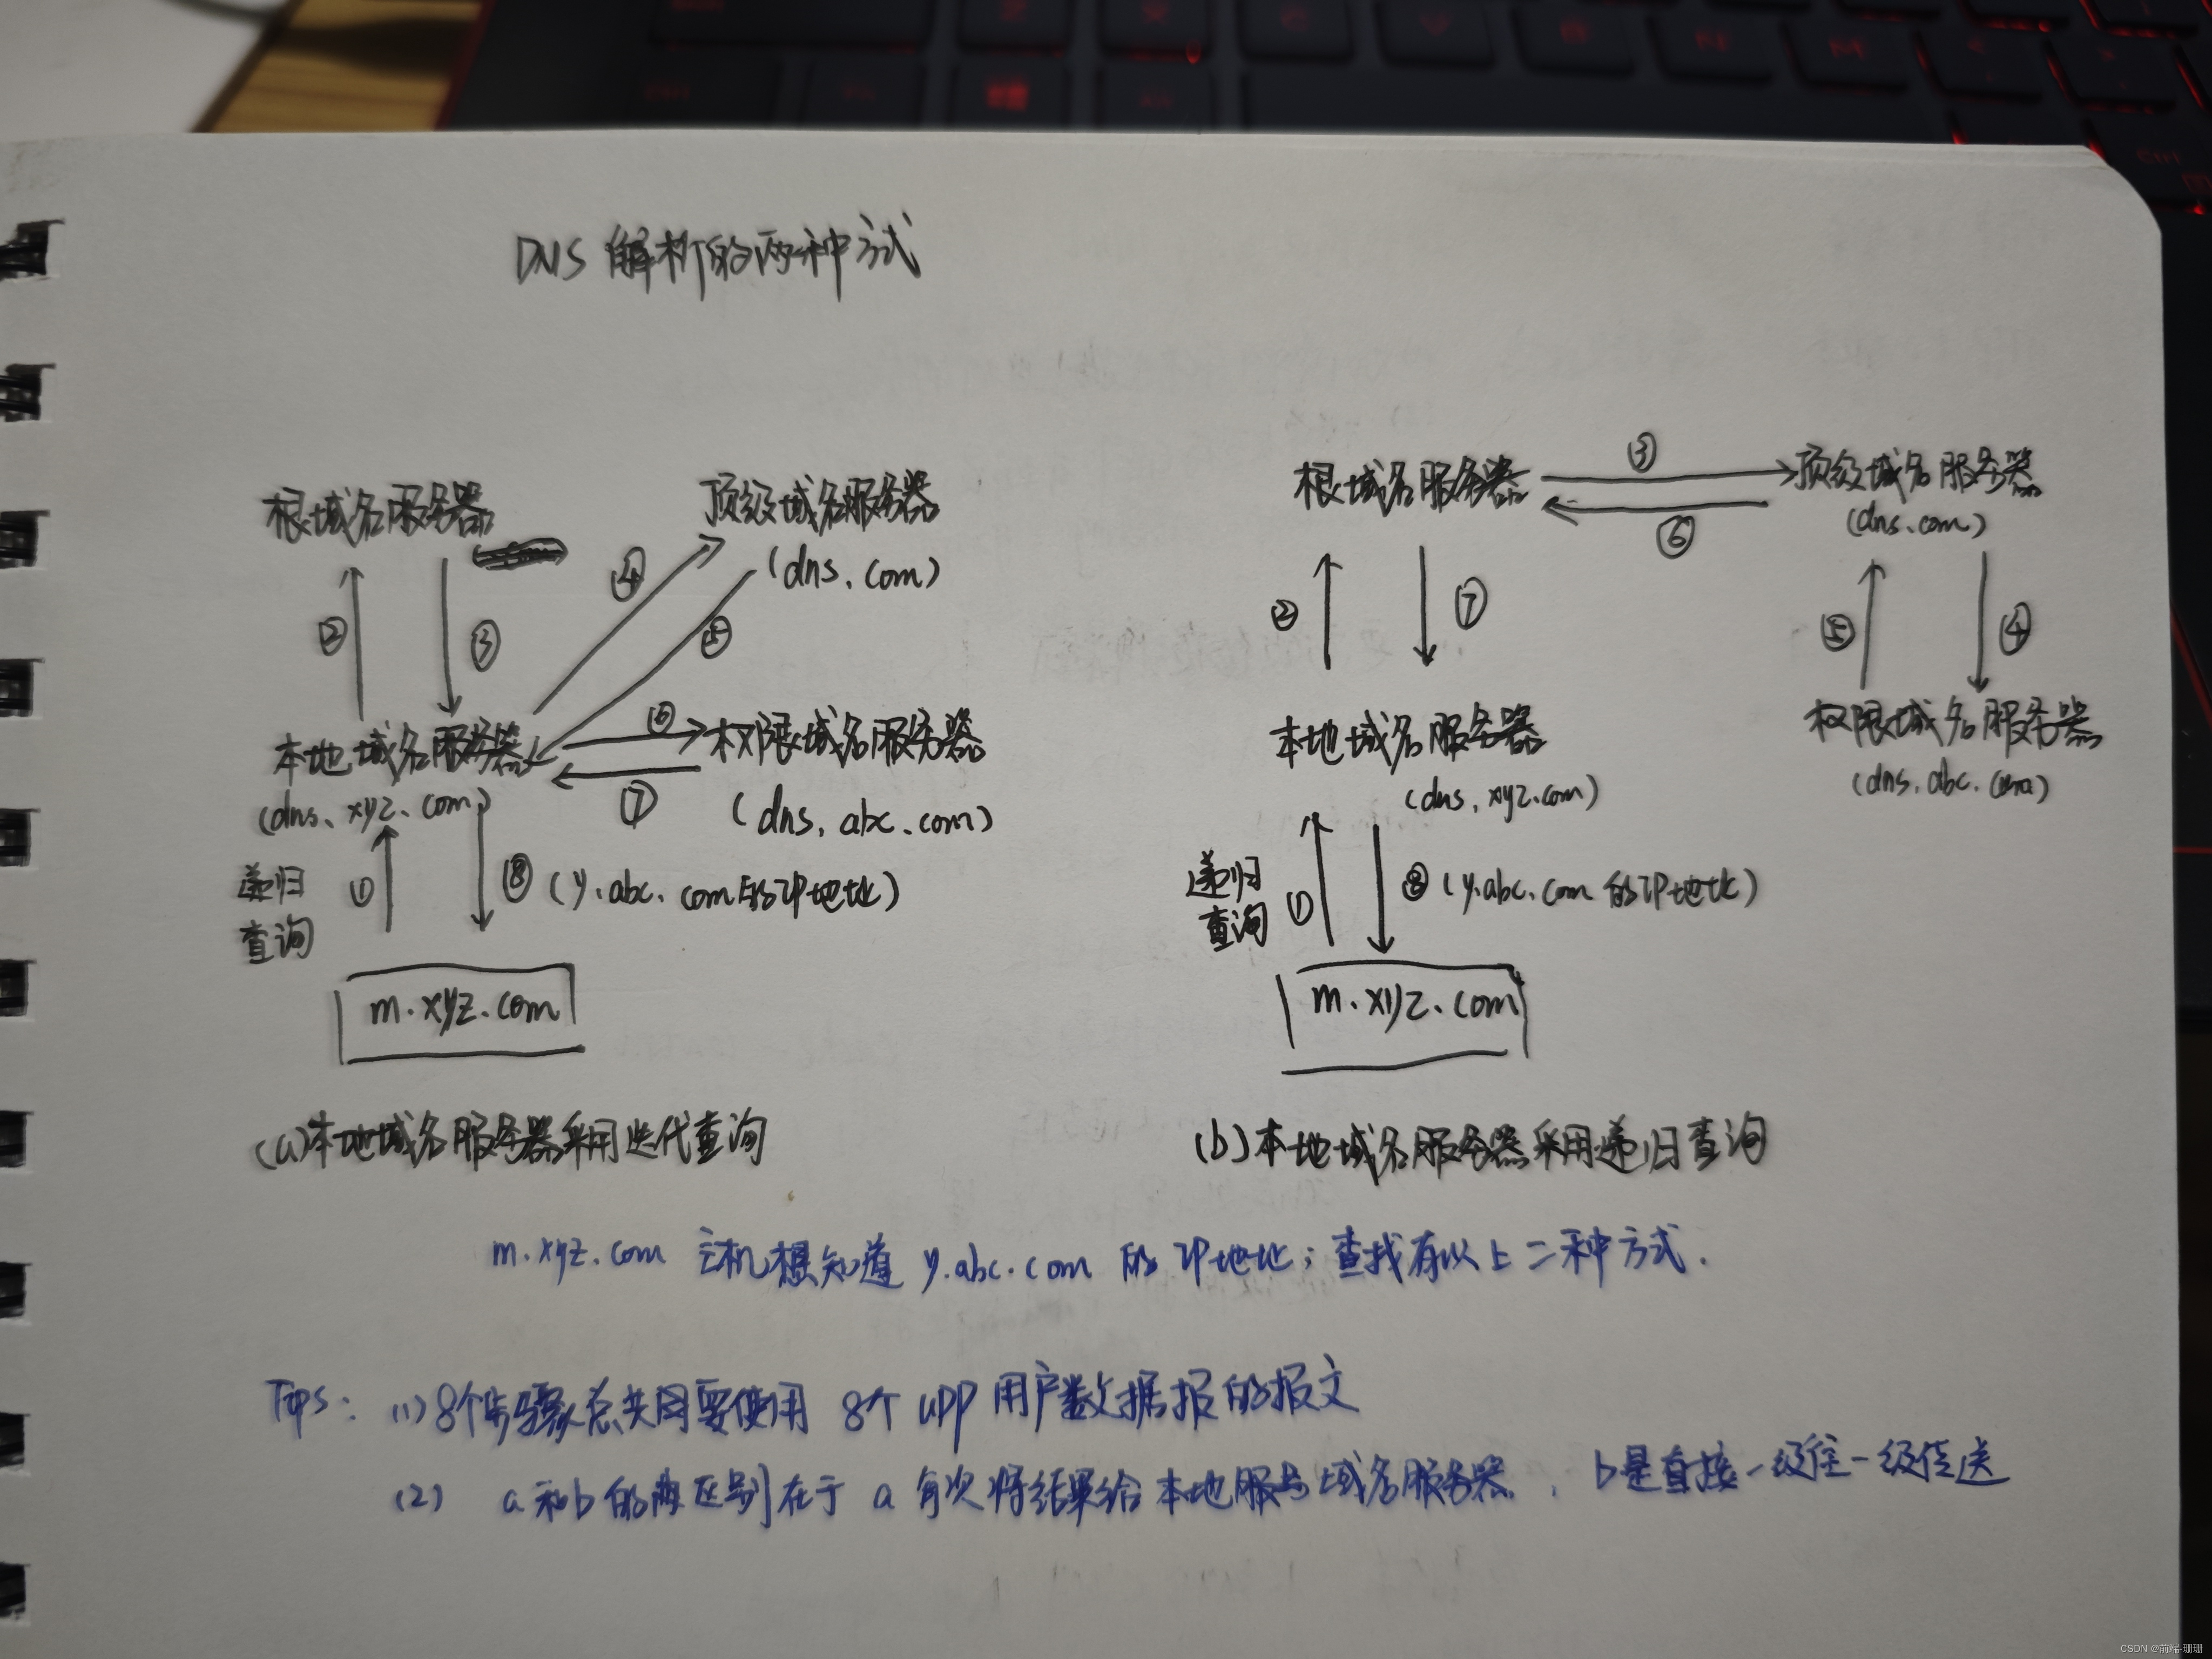 DNS 解析的两种方式
根域名服务器
顶级域名服务器
(dns.com)
②
③
④
⑤
本地域名服务器
(dns.xyz.com)
⑥
⑦
权限域名服务器
(dns.abc.com)
递归
查询
①
⑧ (y.abc.com的IP地址)
m.xyz.com
(a)本地域名服务器采用迭代查询
根域名服务器
③
⑥
顶级域名服务器
(dns.com)
②
⑦
⑤
④
本地域名服务器
(dns.xyz.com)
权限域名服务器
(dns.abc.com)
递归
查询
①
⑧ (y.abc.com的IP地址)
m.xyz.com
(b)本地域名服务器采用递归查询
m.xyz.com 主机想知道 y.abc.com 的 IP地址; 查找有以上二种方式.
Tips: (1) 8个步骤总共需要使用 8个 UDP 用户数据报的报文
(2) a和b的区别在于 a 每次将结果给本地服务域名服务器, b是直接一级往一级传送
CSDN @前端-珊珊